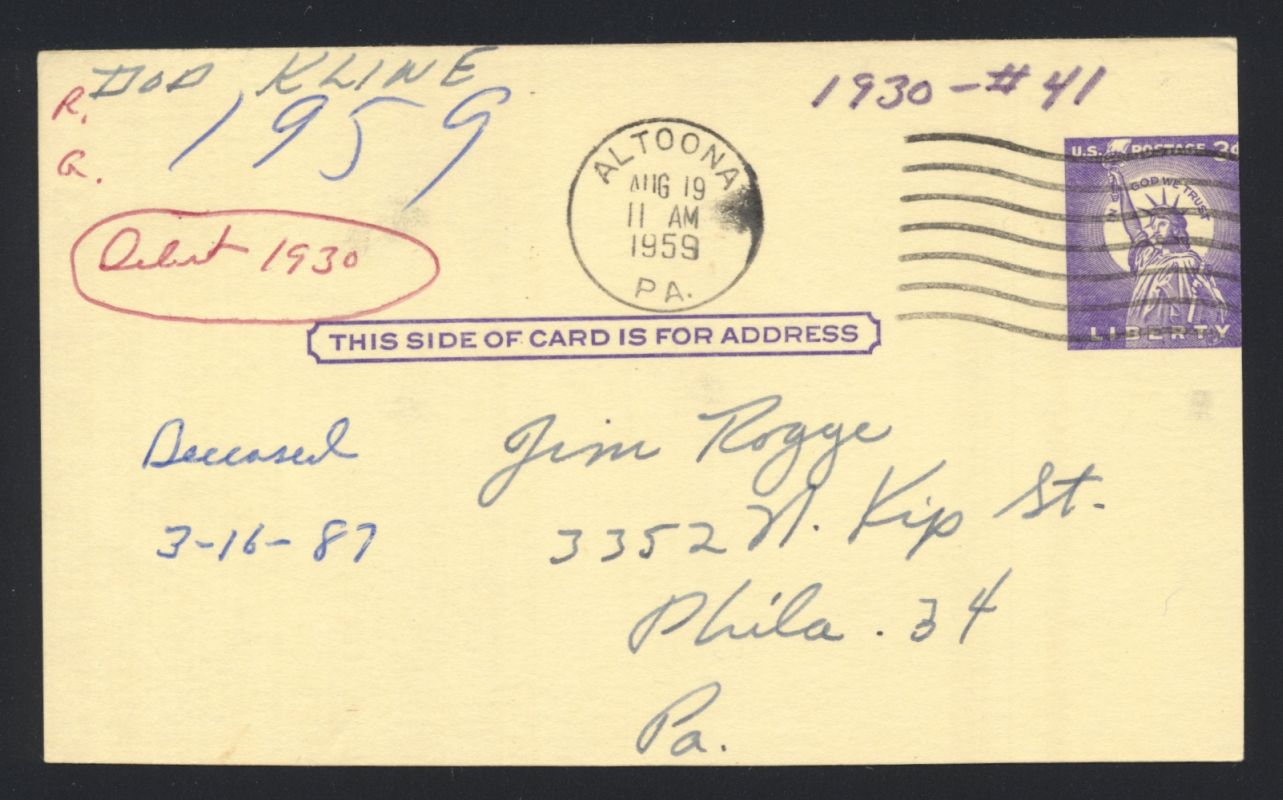 BOB KLINE
R.
G.
1959
1930 - #41
Debut 1930
ALTOONA
AUG 19
11 AM
1959
PA.
U.S. POSTAGE 3¢
IN GOD WE TRUST
LIBERTY
THIS SIDE OF CARD IS FOR ADDRESS
Deceased
3-16-87
Jim Rogge
3352 N. Kip St.
Phila. 34
Pa.